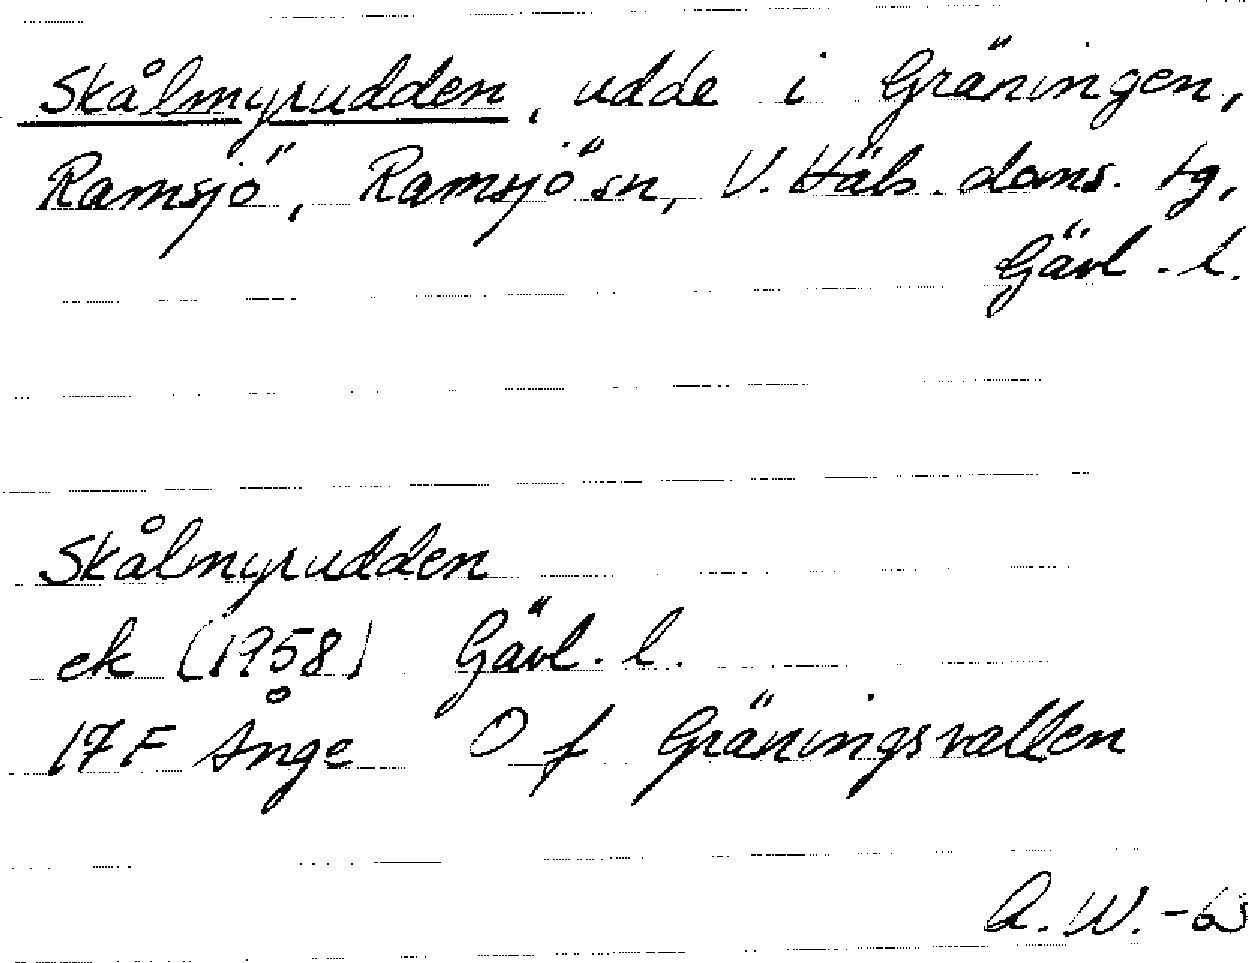 Skålmyrudden, udde i Gräningen,
Ramsjö, Ramsjö sn, V. Häls. doms. tg,
Gävl. l.
Skålmyrudden
ek (1958) Gävl. l.
17F Ånge O f Gräningsvallen
A. W. -63